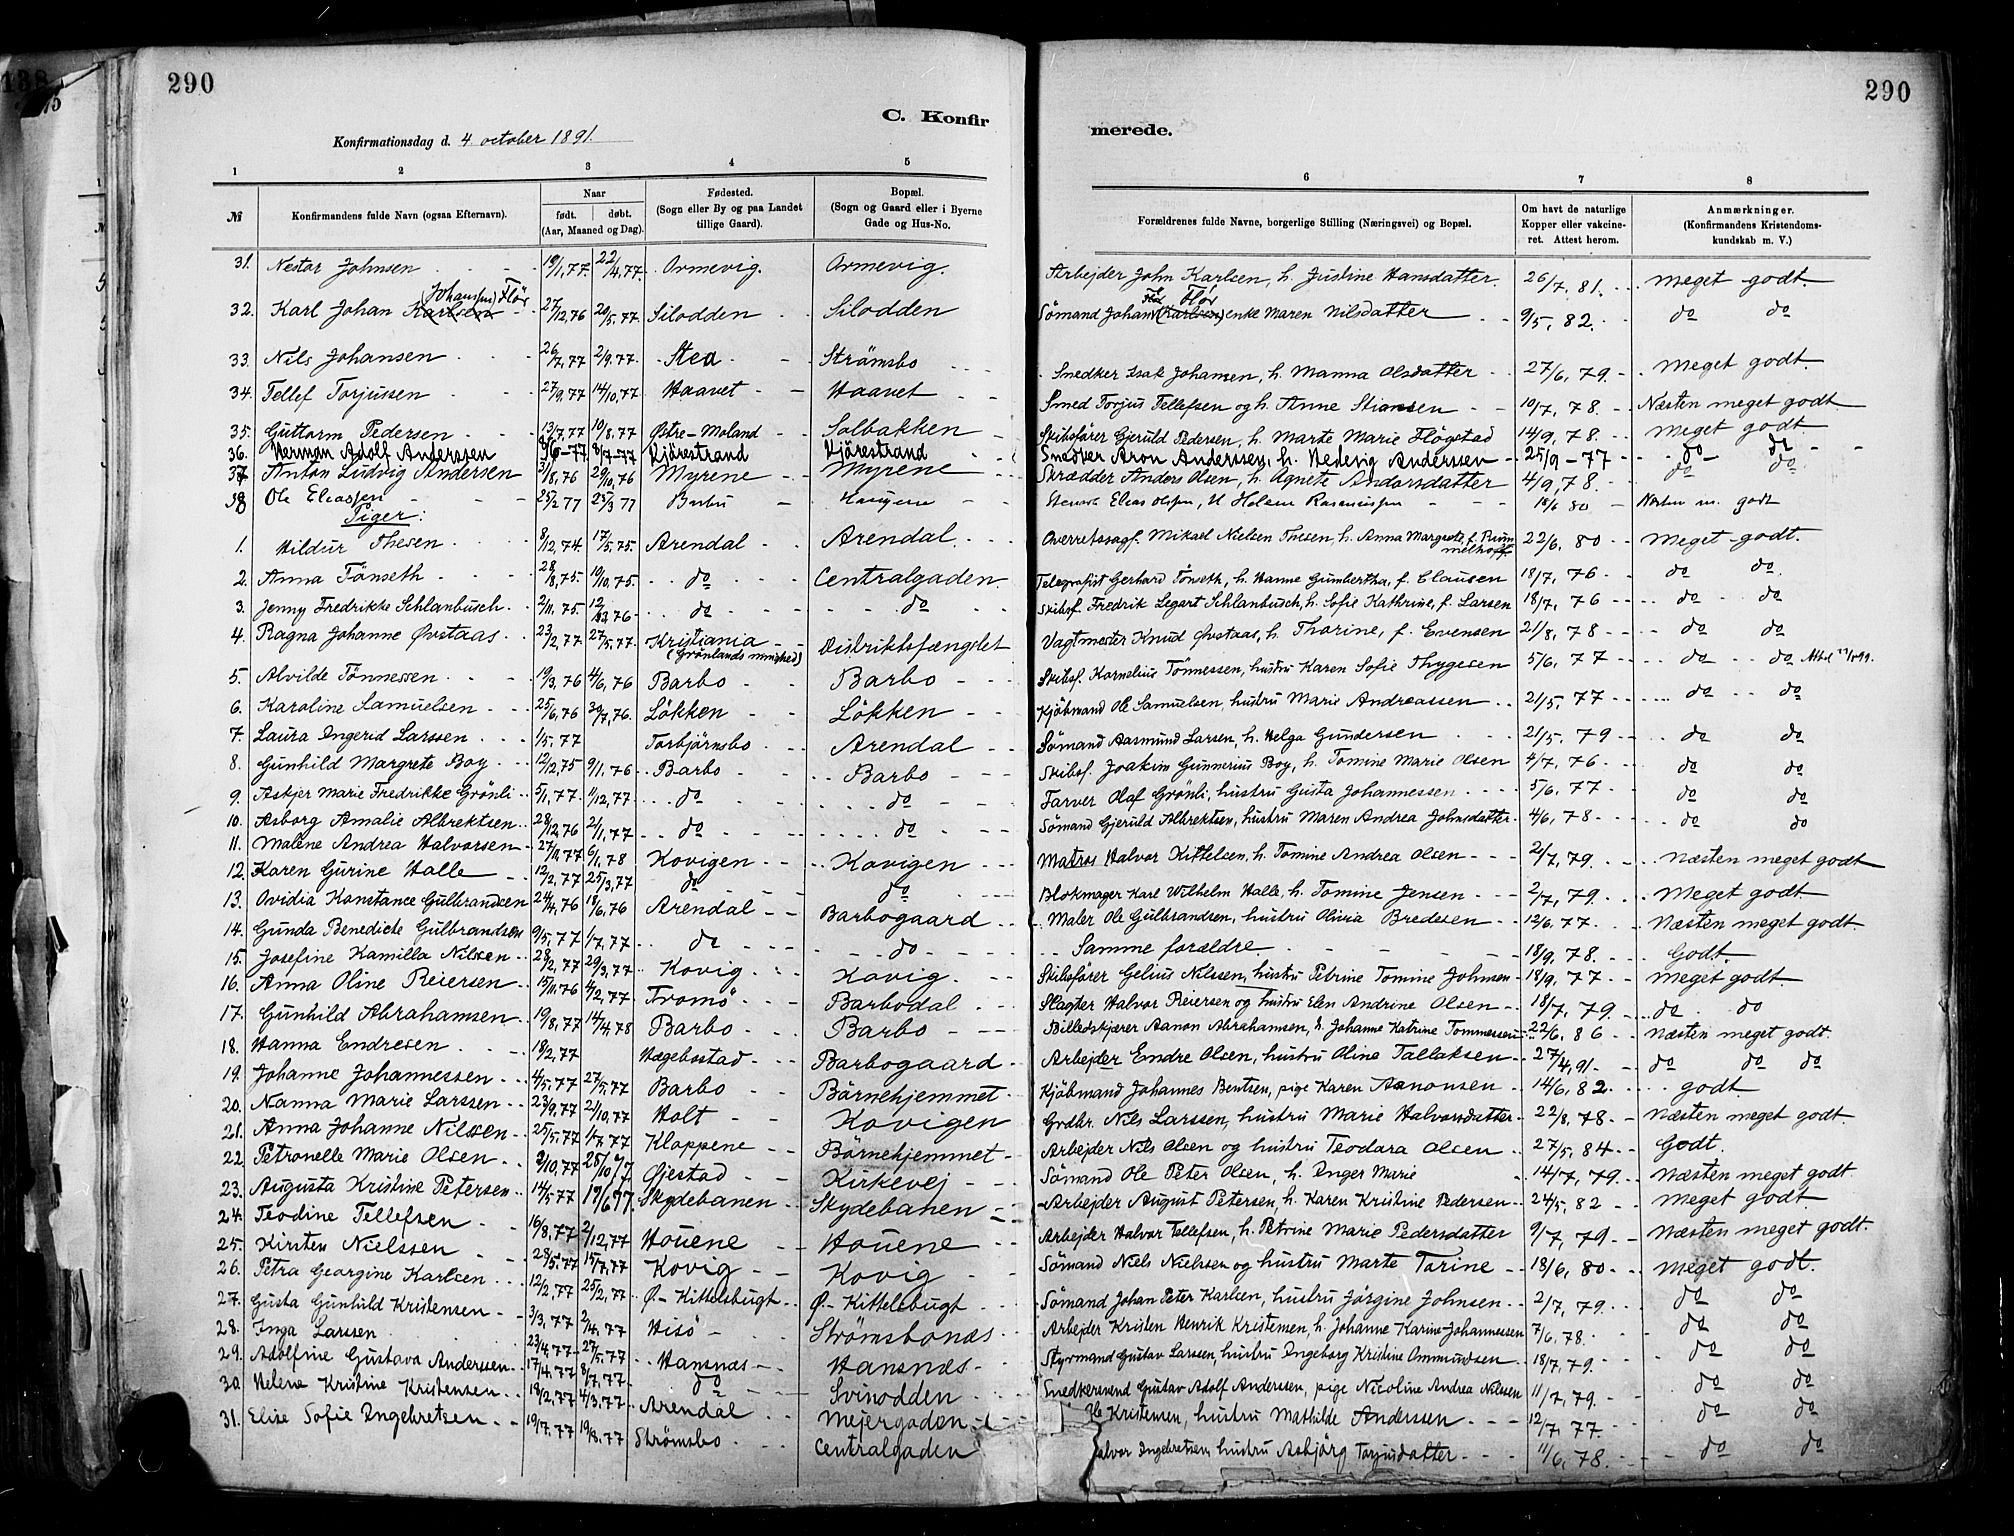 290
C. Konfir
Konfirmationsdag d. 4 october 1891.
1 2 3 4 5
№ Konfirmandens fulde Navn (ogsaa Efternavn). Naar født. døbt. (Aar, Maaned og Dag). Fødested. (Sogn eller By og paa Landet tillige Gaard). Bopæl. (Sogn og Gaard eller i Byerne Gade og Hus-No.
31. Nestor Johnsen 19/1,77. 22/4,77. Ormevig. Ormevig.
(Johansen) Flör
32. Karl Johan Karlsen 27/12,76 20/5,77. Silodden Silodden
33. Nils Johansen 26/7,77 2/9,77. Stea Strömsbo
34. Tellef Torjussen 27/9,77 14/10,77 Haavet Haavet
35. Guttorm Pedersen 13/7,77 10/8,77 Østre-Moland Solbakken
36. Herman Adolf Anderssen 8/7-77 Kjörestrand Kjörestrand
37 Anton Ludvig Andersen 31/8,76 29/10,76 Myrene Myrene
38 Ole Eliassen 23/2 77 25/3 77 Barbu
Piger:
1. Hildur Thesen 8/12,74. 17/5,75. Arendal Arendal.
2. Anna Tönseth 28/8,75. 10/10,75. do Centralgaden
3. Jenny Fredrikke Schlanbusch 2/11,75. 12/12 76 do do
4. Ragna Johanne Øvstaas 23/2,77 27/5,77. Kristiania (Grönlands menighed) Distriktsfængslet
5. Alvilde Tönnessen 19/3,76 4/6,76 Barbo Barbo
6. Karoline Samuelsen 25/6,76 30/7,76. Lökken Lökken
7. Laura Ingerid Larssen 1/5,77 Torbjörnsbo Arendal
8. Gunhild Margrete Boy 12/12,75 9/1,76 Barbo Barbo
9. Asbjer Marie Fredrikke Grönli 5/1,77. 11/12,77 do do
10. Asborg Amalie Albrektsen 28/12,76 2/1,77 do do
11. Malene Andrea Halvorsen 27/11,77 6/1,78 Kovigen Kovigen
12 Karen Gurine Halle 12/2,77 25/3,77 do do
13. Ovidia Konstance Gulbrandsen 24/4,76 18/6,76 Arendal Barbogaard
14. Gunda Benedicte Gulbrandsen 9/5,77 1/7,77 do do
15. Josefine Kamilla Nilsen 28/2,77 29/3,77 Kovig Kovig
16. Anna Oline Reiersen 15/11,76 4/2,77 Tromö Barbodal
17. Gunhild Abrahamsen 19/8,77 14/4 78 Barbo Barbo
18. Hanna Endresen 18/2,77 Hægebostad Barbogaard
19. Johanne Johannessen 4/5,77 27/5,77 Barbo Börnehjemmet
20. Nanna Marie Larssen 23/9,77 21/10,77 Holt Kovigen
21. Anna Johanne Nilsen 25/5,77 1/7,77 Kloppene Börnehjemmet
22. Petronelle Marie Olsen 9/10,77 28/10/7 Øjestad Kirkevej
23. Augusta Kristine Petersen 14/5 77 17/6 77. Skydebanen Skydebanen
24. Teodine Tellefsen 16/8,77 2/12,77 Houene Houene
25. Kirsten Nielssen 28/5,77 15/7,77 Kovig Kovig
26. Petra Georgine Karlsen 12/2,77 25/2,77 Ø.-Kittelsbugt Ø.-Kittelsbugt
27. Gusta Gunhild Kristensen 3/3,77 2/4,77 Hisö Strömsbonæs
28. Inga Larssen 23/4,77 27/5,77 Hansnæs Hansnæs
29. Adolfine Gustava Anderssen 17/4,77 8/7,77 do Svinodden
30. Helene Kristine Kristensen 18/2,77 4/3,77 Arendal Mejergaden
31. Elise Sofie Ingebretsen 19/7,77 19/8,77 Strömsbo Centralgaden
290
merede.
6 7 8
Forældrenes fulde Navne, borgerlige Stilling (Næringsvei) og Bopæl. Om havt de naturlige Kopper eller vakcineret. Attest herom. Anmærkninger. (Konfirmandens Kristendomskundskab m. V.)
Arbejder John Karlsen, h. Justine Hansdatter. 26/7,81. meget godt.
Flör
Sömand Johan (Karlsen) enke Maren Nilsdatter 9/5,82. do do
Snedker Isak Johansen, h. Manna Olsdatter 27/6,79. Meget godt.
Smed Torjus Tellefsen og h. Anne Stiansen 10/7,78. Næsten meget godt
Skibsfører Gjeruld Pedersen, h. Marte Marie Flögstad 14/9,78. meget godt
Snedker Aron Anderssen, h. Hedevig Anderssen 25/9-77 do do
Skrædder Anders Olsen, h. Agnete Andersdatter 4/9,78. do do
Elias Olsen, H Helene Rasmussen 18/6 80 Næsten m. godt
Overretssagf. Mikael Nielsen Thesen, h. Anna Margrete, f. Rummelhoff 22/6,80 Meget godt.
Telegrafist Gerhard Tönseth, h. Hanne Gumbertha, f. Clausen 18/7,76 do do
Skibsf. Fredrik Legart Schlanbusch, h. Sofie Kathrine, f. Larsen 18/7,76 do do
Vagtmester Knud Øvstaas, h. Thorine, f. Evensen 21/8,78 do do
Skibsf. Kornelius Tönnessen, hustru Karen Sofie Thygesen 5/6,77 do do
Kjöbmand Ole Samuelsen, hustru Marie Andreassen 21/5,77 do do
Sömand Aasmund Larsen, h. Helga Gundersen 21/5,79 do do
Skibsf. Joakim Gunnerius Boy, h. Tomine Marie Olsen 4/7,76 do do
Farver Olaf Grönli, hustru Gusta Johannessen 5/6,77 do do
Sömand Gjeruld Albrektsen, hustru Maren Andrea Johnsdatter 4/6,78 do do
Matros Halvor Kittelsen, h. Tomine Andrea Olsen 2/7,79. Næsten meget godt
Blokmager Karl Wilhelm Halle, h. Tomine Jensen 2/7,79. Meget godt.
Maler Ole Gulbrandsen, hustru Olivia Bredesen 12/6,77. Næsten meget godt.
Samme forældre 18/9,78. Godt.
Skibsfører Gelius Nilssen, hustru Petrine Tomine Johnsen 18/9,77 meget godt.
Slagter Halvor Reiersen og hustru Elen Andrine Olsen 18/7,79. do do
Billedskjærer Aanon Abrahamsen, h. Johanne Katrine Tommessen 22/6,86 Næsten meget godt.
Arbejder Endre Olsen, hustru Oline Tallaksen 27/4,91 do do do
Kjöbmand Johannes Bentsen, pige Karen Aanonsen 14/6,82. godt.
Grdbr. Nils Larssen, hustru Marie Halvorsdatter 22/8,78 Næsten meget godt.
Arbejder Nils Olsen og hustru Teodara Olsen 27/5,84 Godt.
Sömand Ole Peter Olsen, h. Inger Marie 14/7,79. Næsten meget godt.
Arbejder August Petersen, h. Karen Kristine Pedersen 24/5,82 meget godt
Arbejder Halvor Tellefsen, h. Petrine Marie Pedersdatter 9/7,79 Næsten meget godt.
Sömand Niels Nielssen og hustru Marte Torine 18/6,80. meget godt.
Sömand Johan Peter Karlsen, hustru Jörgine Johnsen 2/7,79. do do
Arbejder Kristen Henrik Kristensen, h. Johanne Karine Johannessen 7/6,78. do do
Styrmand Gustav Larssen, hustru Ingeborg Kristine Ommundsen 18/7,79. do do
Snedkersvend Gustav Adolf Anderssen, pige Nicoline Andrea Nilssen 11/7,79 do do
Ole Kristensen, hustru Mathilde Anderssen 12/7,77. do do
alvor Ingebretsen, hustru Asbjörg Torjusdatter 11/6,78. do do